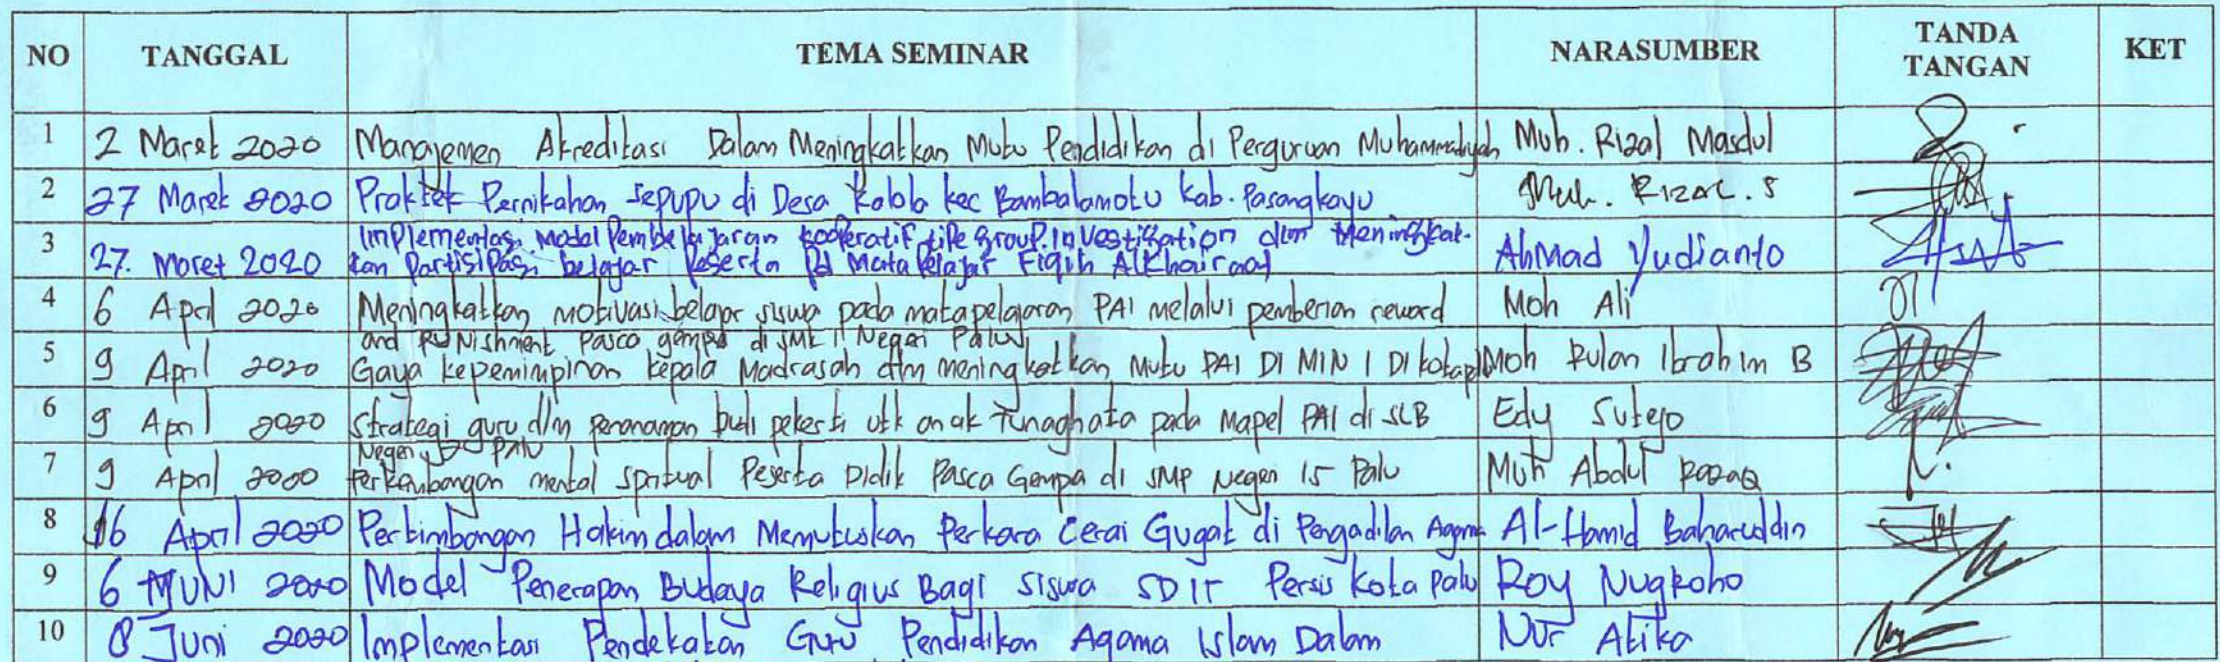 NO TANGGAL TEMA SEMINAR NARASUMBER TANDA TANGAN KET
1 2 Maret 2020 Manajemen Akreditasi Dalam Meningkatkan Mutu Pendidikan di Perguruan Muhammadiyah Muh. Rizal Masdul
2 27 Maret 2020 Praktek Pernikahan sepupu di Desa Kalola kec Bambalamotu Kab. Pasangkayu Muh. RIZAL. S
Implementasi Model Pembelajaran kooperatif tipe Group Investigation dlm Meningkat-
3 27. Maret 2020 kan Partisipasi belajar Peserta Pd Mata Pelajar Fiqih Alkhairaat Ahmad Yudianto
4 6 April 2020 Meningkatkan motivasi belajar siswa pada matapelajaran PAI melalui pemberian reward Moh Ali
and PUNishment Pasca gempa di SMK 11 Negeri Palu
5 9 April 2020 Gaya kepemimpinan kepala Madrasah dlm meningkatkan Mutu PAI DI MIN 1 DI kota Moh Rulan Ibrahim B
6 9 April 2020 Strategi guru dlm penanaman budi pekerti utk anak Tunaghata pada Mapel PAI di SLB Edy Sutejo
Negeri Palu
7 9 April 2020 Perkembangan mental spritual Peserta Didik Pasca Gempa di SMP Negeri 15 Palu Muh Abdul Rozaq
8 16 April 2020 Pertimbangan Hakim dalam Memutuskan Perkara Cerai Gugat di Pengadilan Agama Al-Hamid Baharuddin
9 6 JUNI 2020 Model Penerapan Budaya Religius Bagi siswa SDIT Persis Kota Palu Roy Nugroho
10 8 Juni 2020 Implementasi Pendekatan Guru Pendidikan Agama Islam Dalam Nur Atika